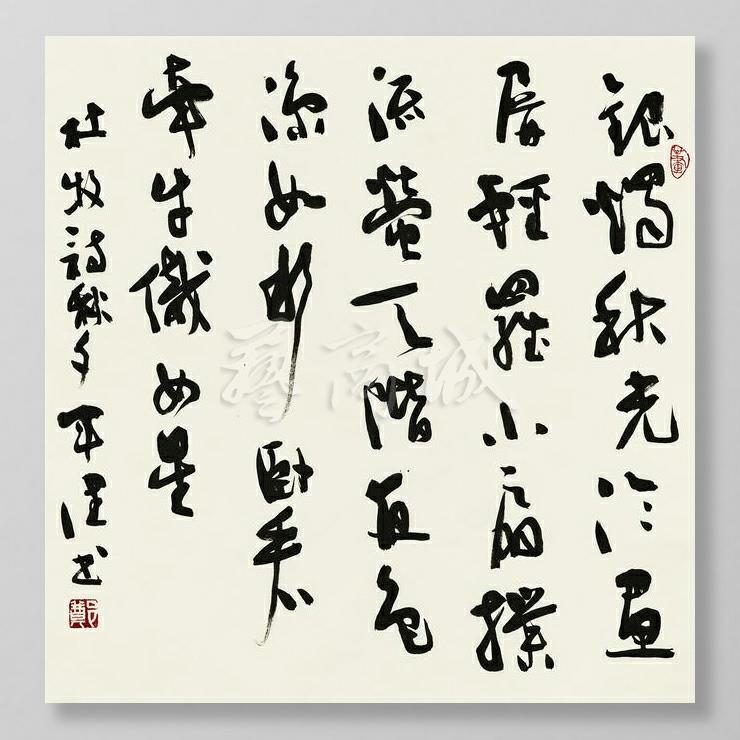 銀燭秋光冷畫
屏輕羅小扇撲
流螢天階夜色
涼如水卧看
牽牛織女星
杜牧詩秋夕書
藝商城